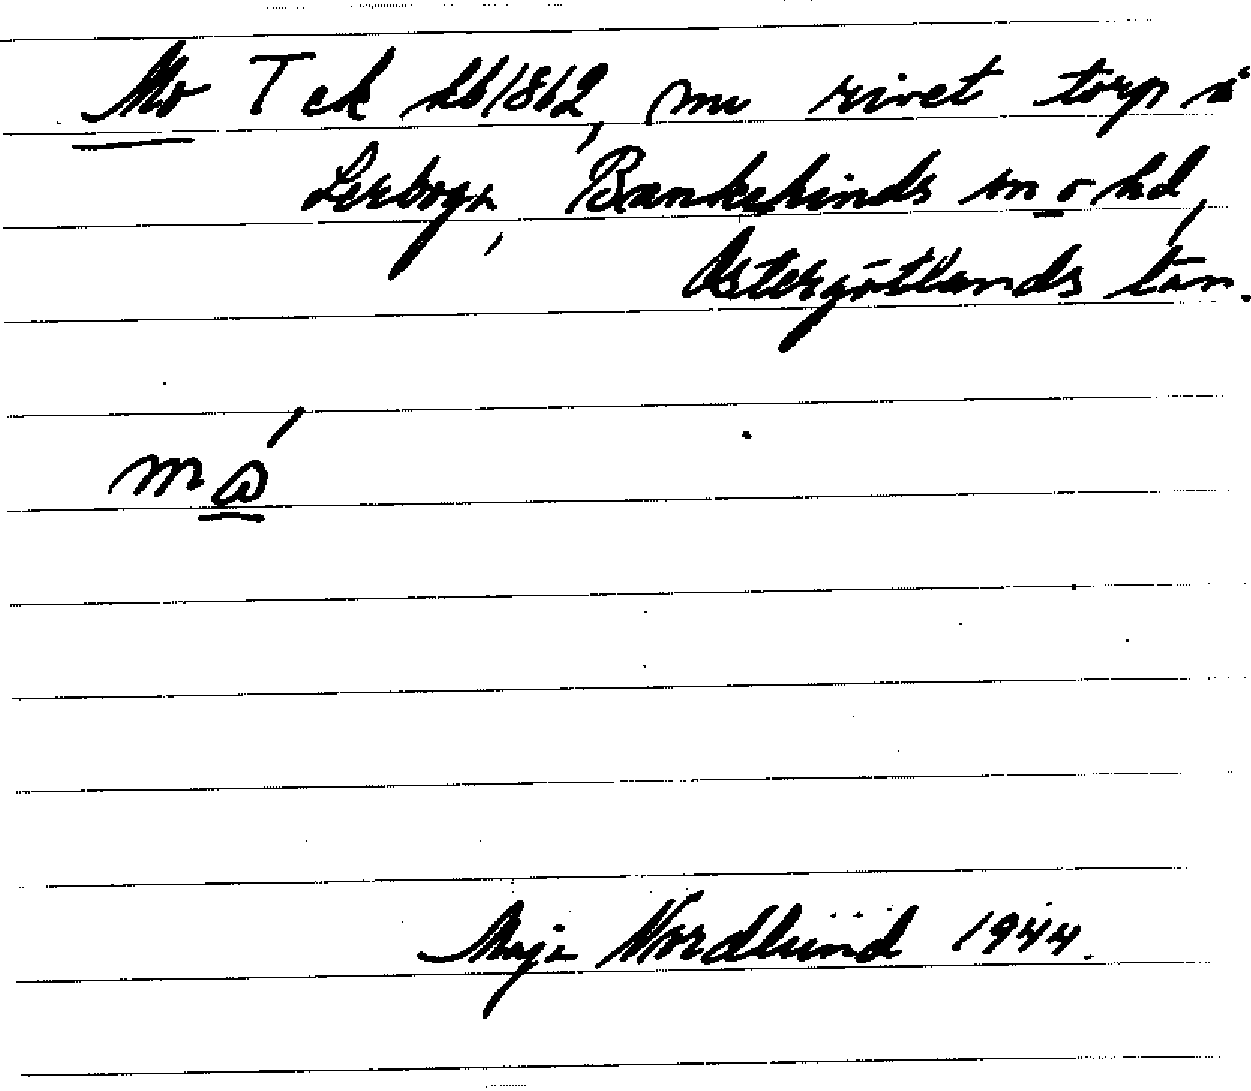 Mo T ek hb 1862, nu rivet torp i
Lerboga, Bankekinds sn o hd,
Östergötlands län.
må´
Maja Nordlund 1944.